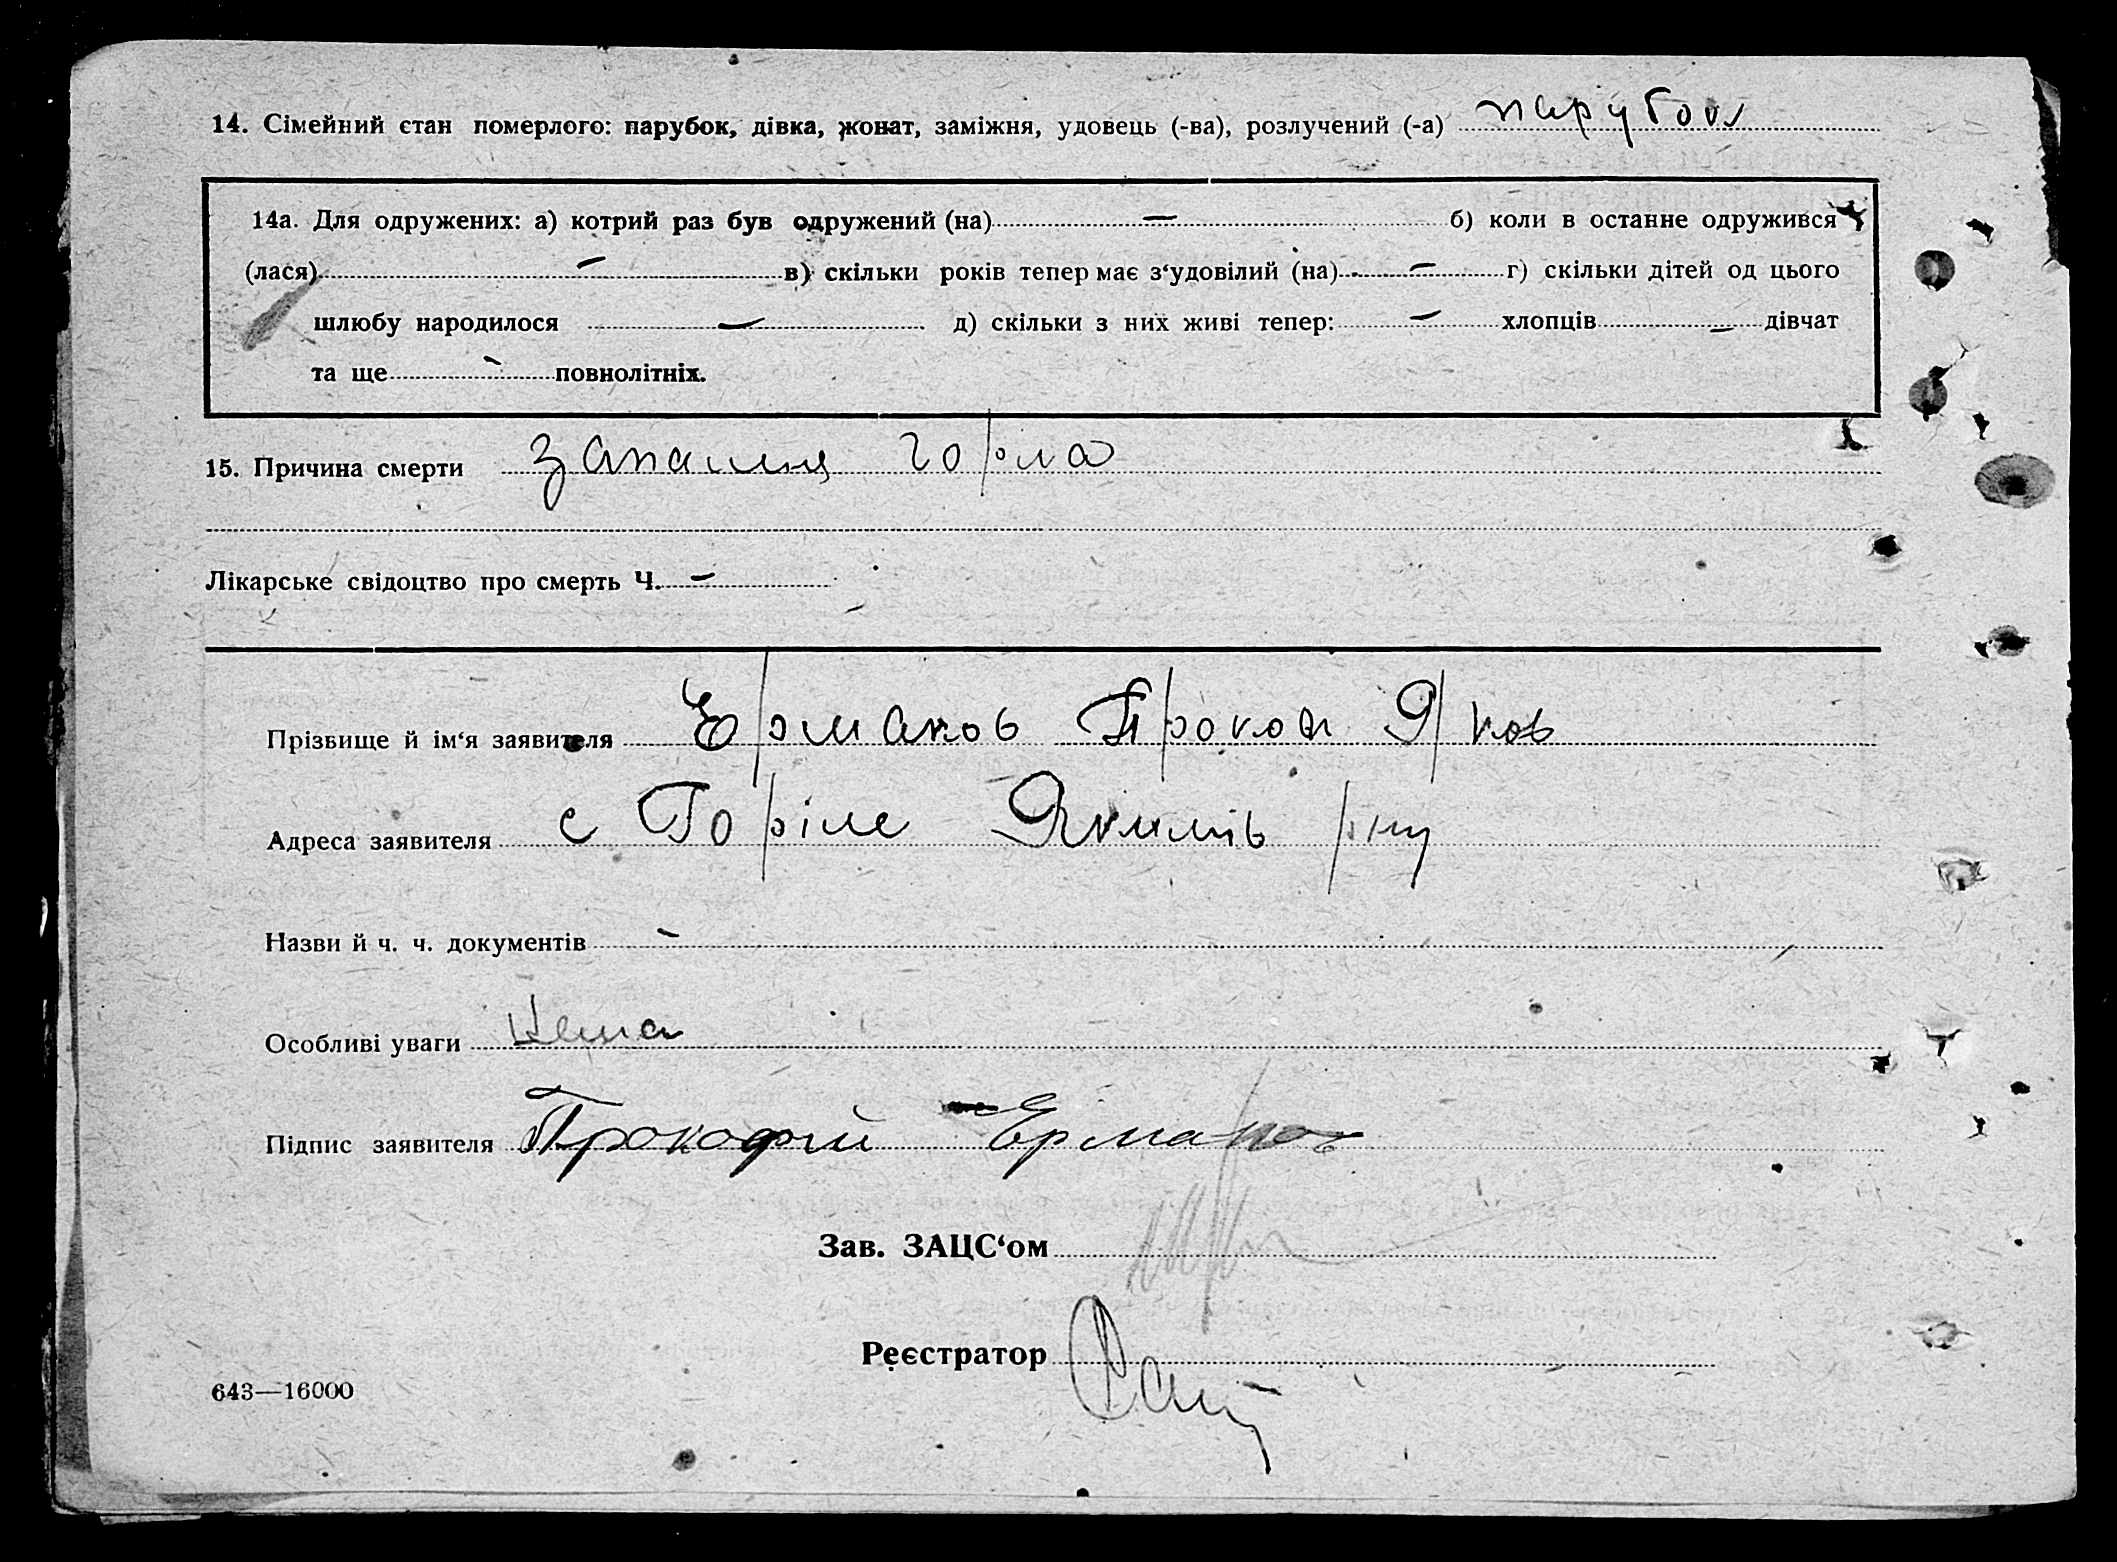 14. Сімейний стан померлого: парубок, дівка, жонат, заміжня, удовець (-ва), розлучений (-а) парубок
14а. Для одружених: а) котрий раз був одружений (на) — б) коли в останнє одружився
(лася) — в) скільки років тепер має з‘удовілий (на) — г) скільки дітей од цього
шлюбу народилося — д) скільки з них живі тепер: — хлопців — дівчат
та ще — повнолітніх.
15. Причина смерти запалння горла
Лікарське свідоцтво про смерть Ч. —
Прізвище й ім‘я заявителя Ермаков Прокоп Яков
Адреса заявителя с Горіле Якимів рну
Назви й ч. ч. документів —
Особливі уваги Нема
Підпис заявителя Прокофій Ермаков
Зав. ЗАЦС‘ом
Реєстратор
643—16000